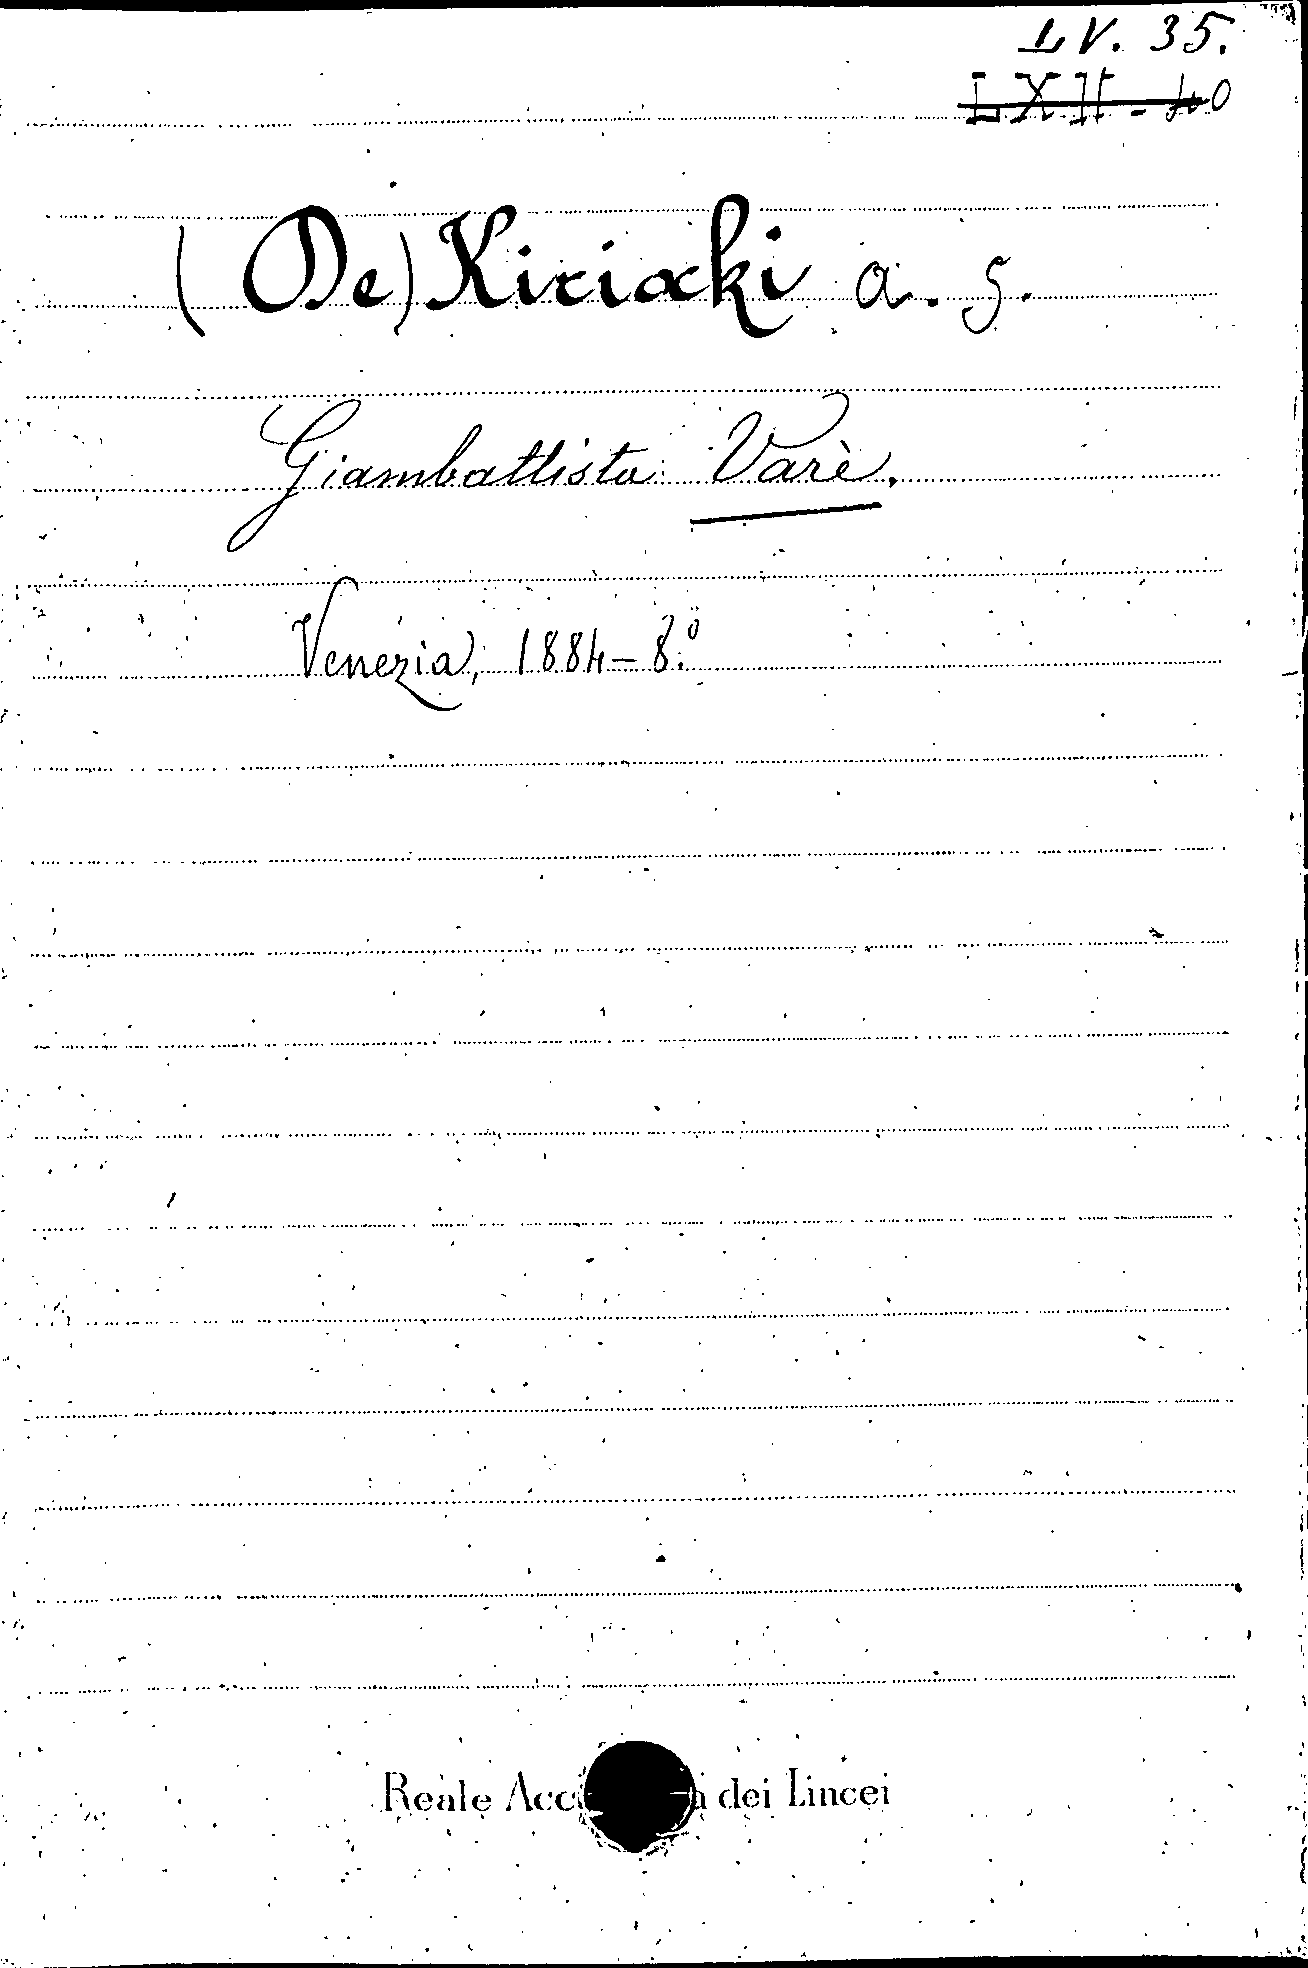 LV. 35.
LXII - 40
(De) Kiriaki a. s.
Giambattista Varè.
Venezia, 1884 – 8.º
Reale Acc a dei Lincei